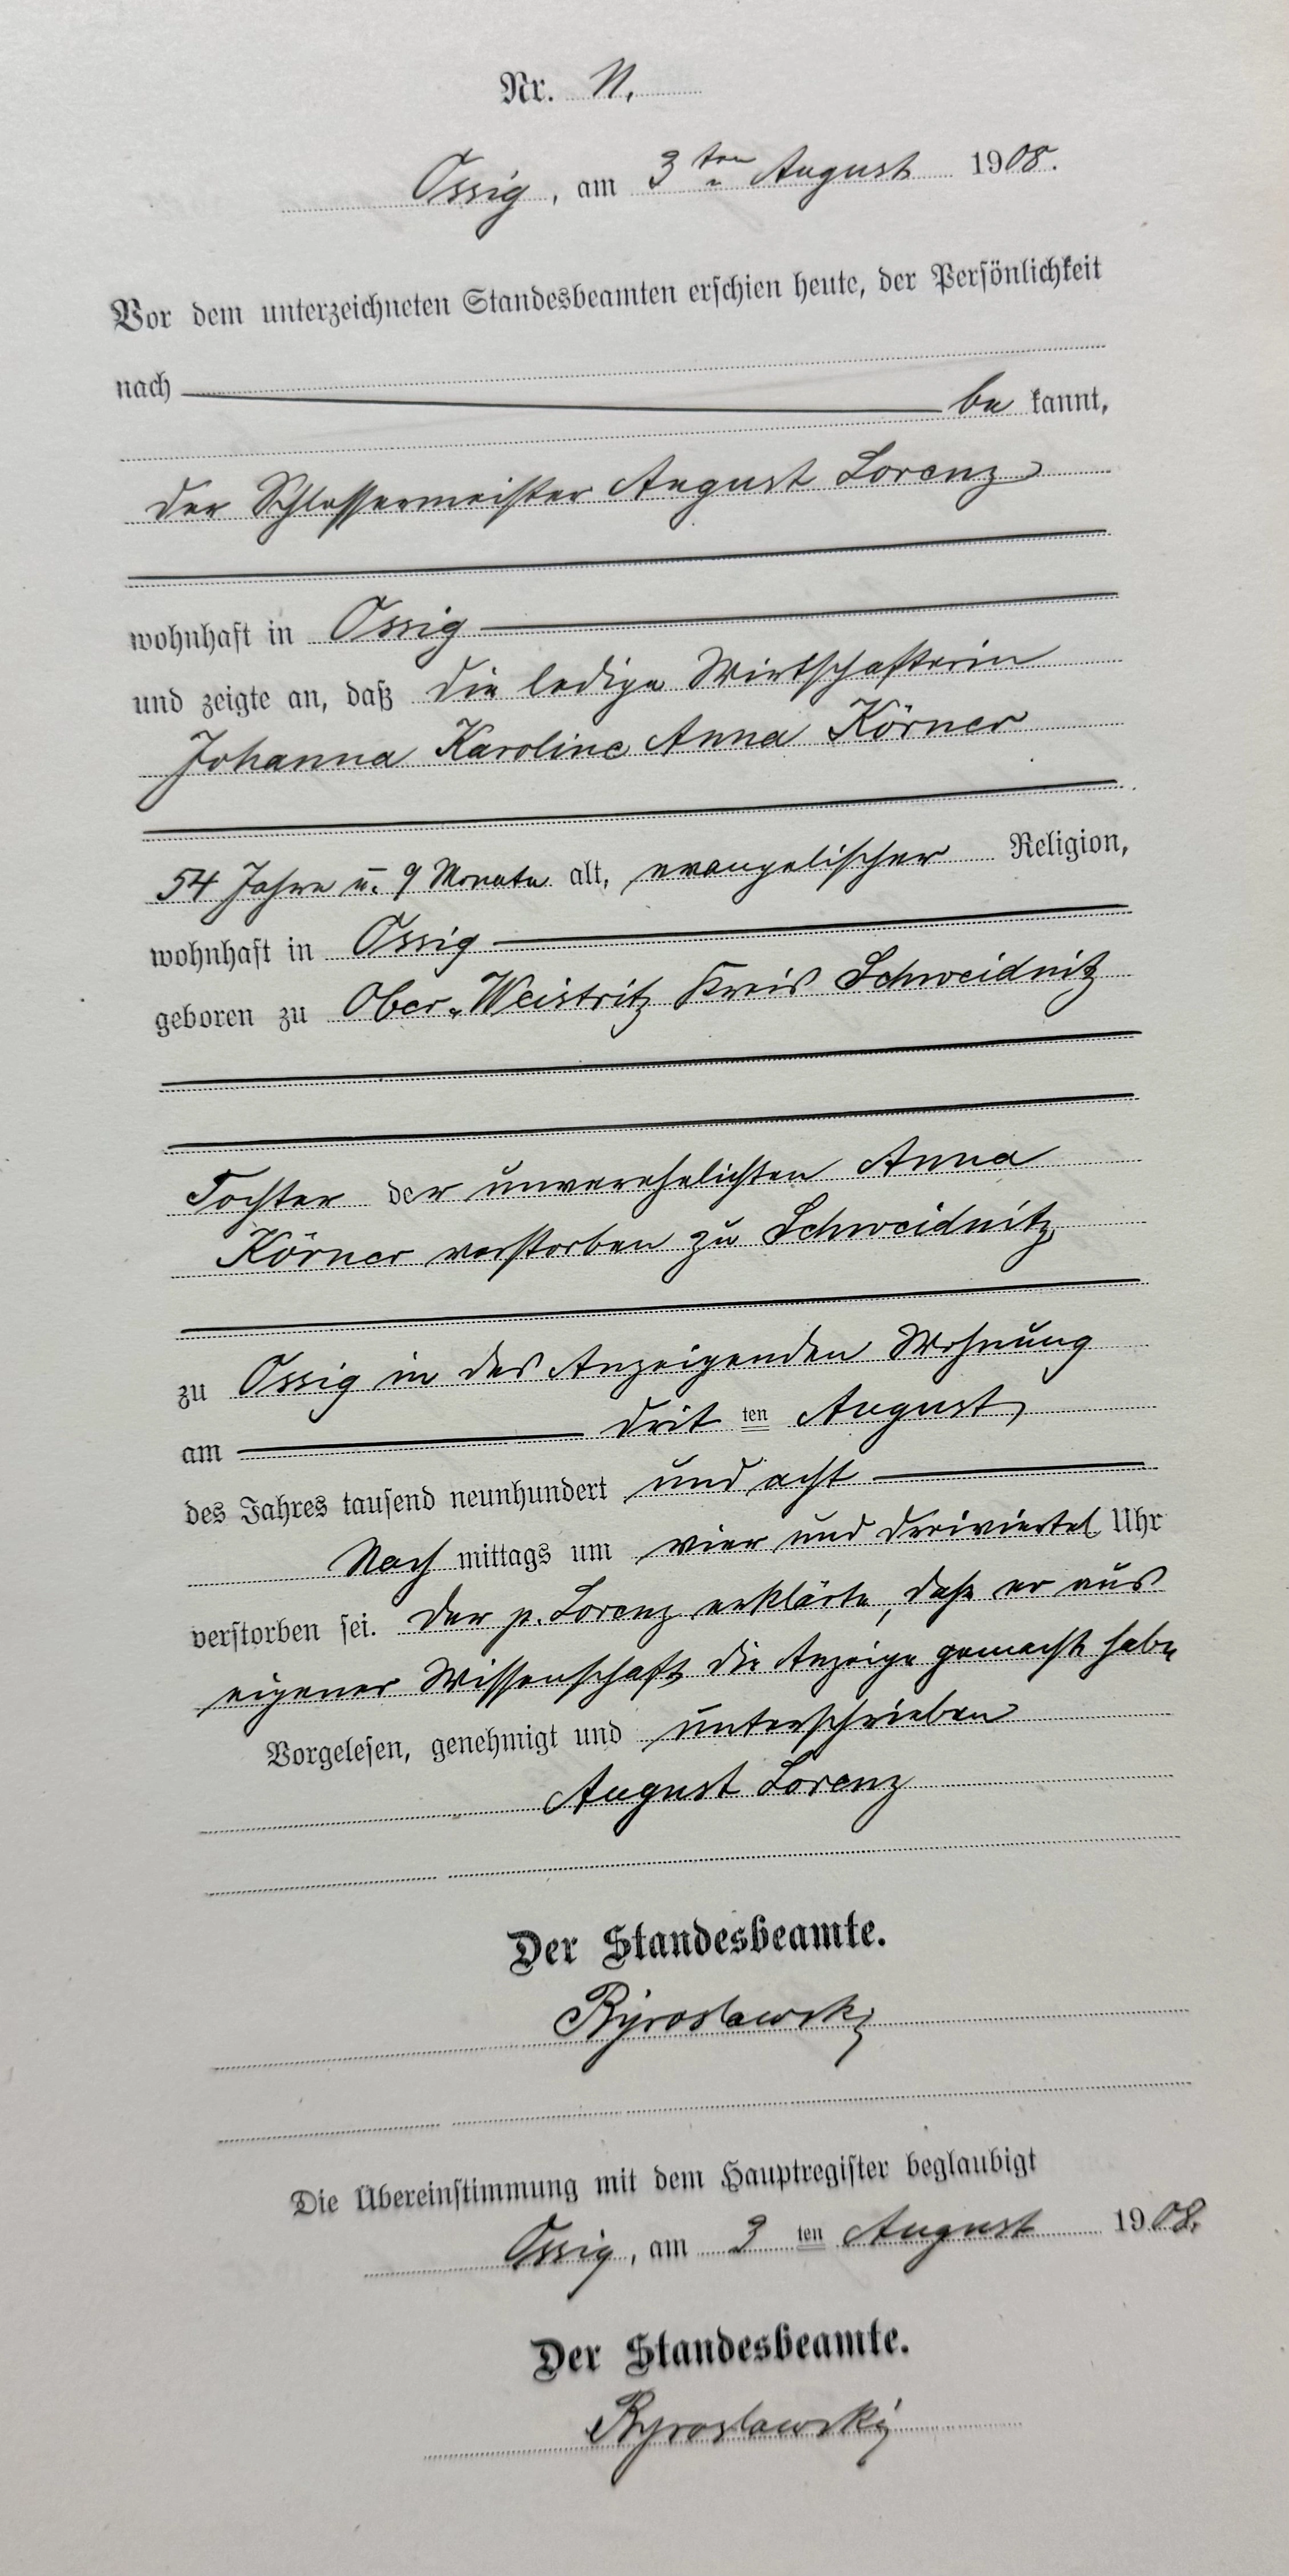 Nr. 11.
Ossig, am 3ten August 1908.
Vor dem unterzeichneten Standesbeamten erschien heute, der Persönlichkeit
nach
be kannt,
der Schlossermeister August Lorenz
wohnhaft in Ossig
und zeigte an, daß die ledige Wirtschafterin
Johanna Karoline Anna Körner
54 Jahre u. 9 Monate alt, evangelischer Religion,
wohnhaft in Ossig
geboren zu Ober-Weistritz Kreis Schweidnitz
Tochter der unverehelichten Anna
Körner verstorben zu Schweidnitz
zu Ossig in des Anzeigenden Wohnung
am drit ten August
des Jahres tausend neunhundert und acht
Nach mittags um vier und dreiviertel Uhr
verstorben sei. Der p. Lorenz erklärte, daß er aus
eigener Wissenschaft die Anzeige gemacht habe
Vorgelesen, genehmigt und unterschrieben
August Lorenz
Der Standesbeamte.
Die Übereinstimmung mit dem Hauptregister beglaubigt
Ossig, am 3 ten August 1908.
Der Standesbeamte.